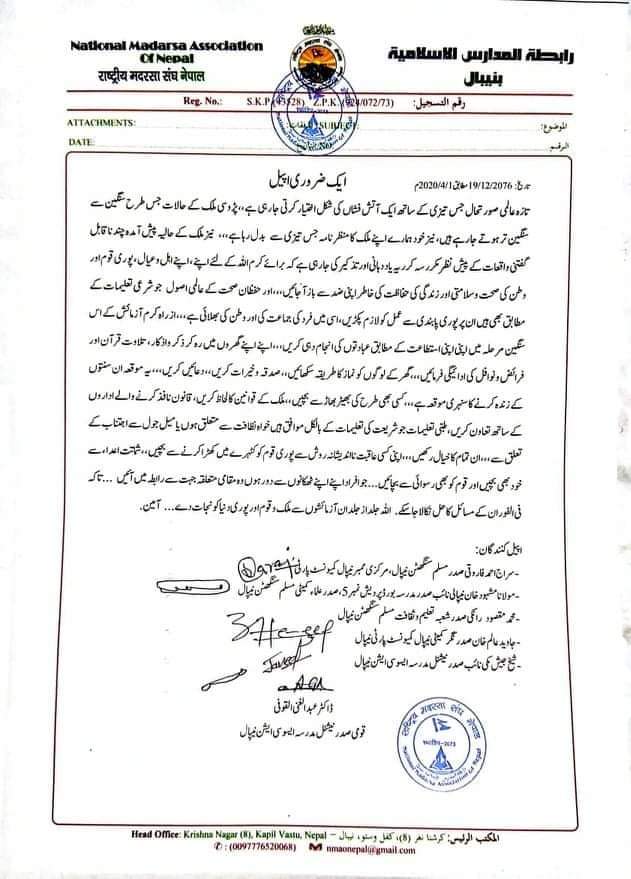 National Madarsa Association
Of Nepal
राष्ट्रीय मदरसा संघ नेपाल
رابطة المدارس الاسلامية
بنيبال
Reg. No.: S.K.P (43528) Z.P.K. (224/072/73) رقم التسجيل:
ATTACHMENTS: SUBJECT: الموضوع:
DATE: الرقم
ایک ضروری اپیل
تاریخ: 19/12/2076 مطابق 2020/4/1م
تازہ عالمی صورتحال جس تیزی کے ساتھ ایک آتش فشاں کی شکل اختیار کرتی جارہی ہے،، پڑوسی ملک کے حالات جس طرح سنگین سے
سنگین تر ہوتے جارہے ہیں، نیز خود ہمارے اپنے ملک کا منظر نامہ جس تیزی سے بدل رہا ہے،،، نیز ملک کے حالیہ پیش آمدہ چند ناقابل
گفتنی واقعات کے پیش نظر مکرر سہ کرر یہ یاد دہانی اور تذکیر کی جارہی ہے کہ برائے کرم اللہ کے لئے اپنے، اپنے اہل و عیال، پوری قوم اور
وطن کی صحت وسلامتی اور زندگی کی حفاظت کی خاطر اپنی ضد سے باز آجائیں،،،، اور حفظان صحت کے عالمی اصول جو شرعی تعلیمات کے
مطابق بھی ہیں ان پر پوری پابندی سے عمل کو لازم پکڑیں، اسی میں فرد کی جماعت کی اور وطن کی بھلائی ہے،،، ازراہ کرم آزمائش کے اس
سنگین مرحلہ میں اپنی اپنی استطاعت کے مطابق عبادتوں کی انجام دہی کریں،،، اپنے اپنے گھروں میں رہ کر ذکر و اذکار، تلاوت قرآن اور
فرائض و نوافل کی ادائیگی فرمائیں،،، گھر کے لوگوں کو نماز کا طریقہ سکھائیں،، صدقہ و خیرات کریں،، دعائیں کریں،،، یہ موقعہ ان سنتوں
کے زندہ کرنے کا سنہری موقعہ ہے،،، کسی بھی طرح کی بھیڑ بھاڑ سے بچیں،، ملک کے قوانین کا لحاظ کریں، قانون نافذ کرنے والے اداروں
کے ساتھ تعاون کریں، طبی تعلیمات جو شریعت کی تعلیمات کے بالکل موافق ہیں خواہ نظافت سے متعلق ہوں یا میل جول سے اجتناب کے
تعلق سے،،، ان تمام کا خیال رکھیں،،، اپنی کسی عاقبت نااندیشانہ روش سے پوری قوم کو کٹہرے میں کھڑا کرنے سے بچیں،، شماتت اعداء سے
خود بھی بچیں اور قوم کو بھی رسوائی سے بچائیں... جو افراد اپنے اپنے ٹھکانوں سے دور ہوں وہ مقامی متعلقہ جہت سے رابطہ میں آئیں ... تاکہ
فی الفور ان کے مسائل کا حل نکالا جاسکے. اللہ جلد از جلد ان آزمائشوں سے ملک و قوم اور پوری دنیا کو نجات دے... آمین.
اپیل کنندگان:
-سراج احمد فاروقی صدر مسلم سنگھٹن نیپال، مرکزی ممبر نیپال کمیونسٹ پارٹی
-مولانا مشہود خان نیپالی نائب صدر مدرسہ بورڈ پردیش نمبر 5، صدر علماء کمیٹی مسلم سنگھٹن نیپال
-محمد مقصود رانگی صدر شعبہ تعلیم و ثقافت مسلم سنگھٹن نیپال
-جاوید عالم خان صدر نگر کمیٹی نیپال کمیونسٹ پارٹی نیپال
-شیخ جیش مکی نائب صدر نیشنل مدرسہ ایسوسی ایشن نیپال
ڈاکٹر عبدالغنی القوفی
قومی صدر نیشنل مدرسہ ایسوسی ایشن نیپال
राष्ट्रिय मदरसा संघ नेपाल
स्थापित-2073
National Madarsa Association of Nepal
Head Office: Krishna Nagar (8), Kapil Vastu, Nepal – المكتب الرئيس: كرشنا نغر (8)، كفل وستو، نيبال
✆ : (0097776520068) nmaonepal@gmail.com